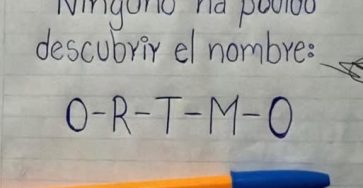 Ninguno ha podido
descubrir el nombre:
O-R-T-M-O